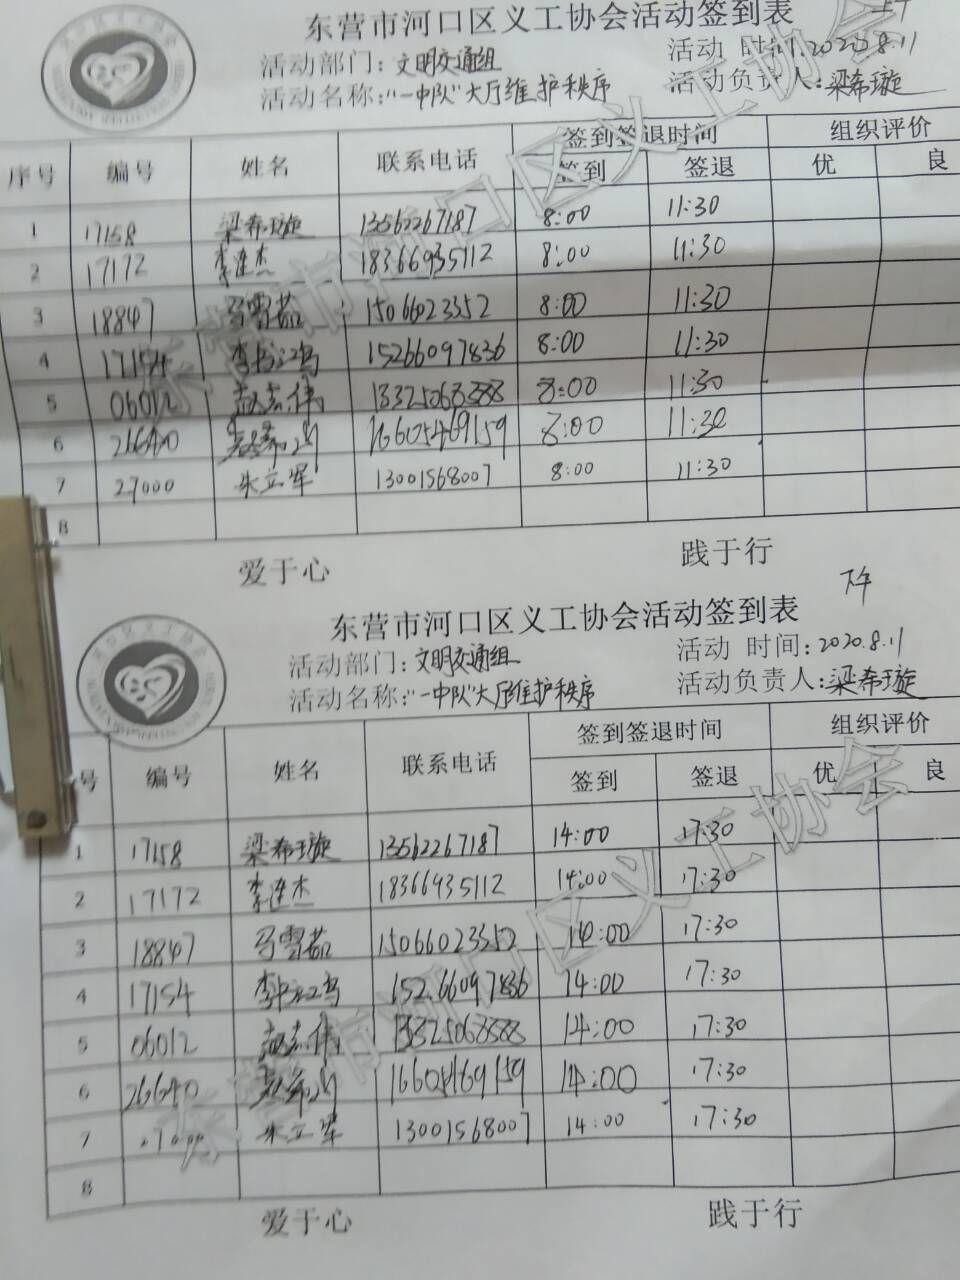 东营市河口区义工协会活动签到表
活动部门:文明交通组 活动 时间:2020.8.11
活动名称:"一中队"大厅维护秩序 活动负责人:梁希璇
序号 编号 姓名 联系电话 签到签退时间 组织评价
签到 签退 优 良
1 17158 梁希璇 13562267187 8:00 11:30
2 17172 李连杰 18366935112 8:00 11:30
3 18847 马雪茹 15066023352 8:00 11:30
4 17154 15266097836 8:00 11:30
5 06012 赵志伟 13325068888 8:00 11:30
6 26640 16605469159 8:00 11:30
7 27000 朱立军 13001568007 8:00 11:30
8
爱于心 践于行
下午
东营市河口区义工协会活动签到表
活动部门:文明交通组 活动 时间:2020.8.11
活动名称:"一中队"大厅维护秩序 活动负责人:梁希璇
号 编号 姓名 联系电话 签到签退时间 组织评价
签到 签退 优 良
1 17158 梁希璇 13562267187 14:00 17:30
2 17172 李连杰 18366935112 14:00 17:30
3 18847 马雪茹 15066023352 14:00 17:30
4 17154 15266097836 14:00 17:30
5 06012 赵志伟 13325068888 14:00 17:30
6 26640 14:00 17:30
7 朱立军 13001568007 14:00 17:30
8
爱于心 践于行
东营市河口区义工协会